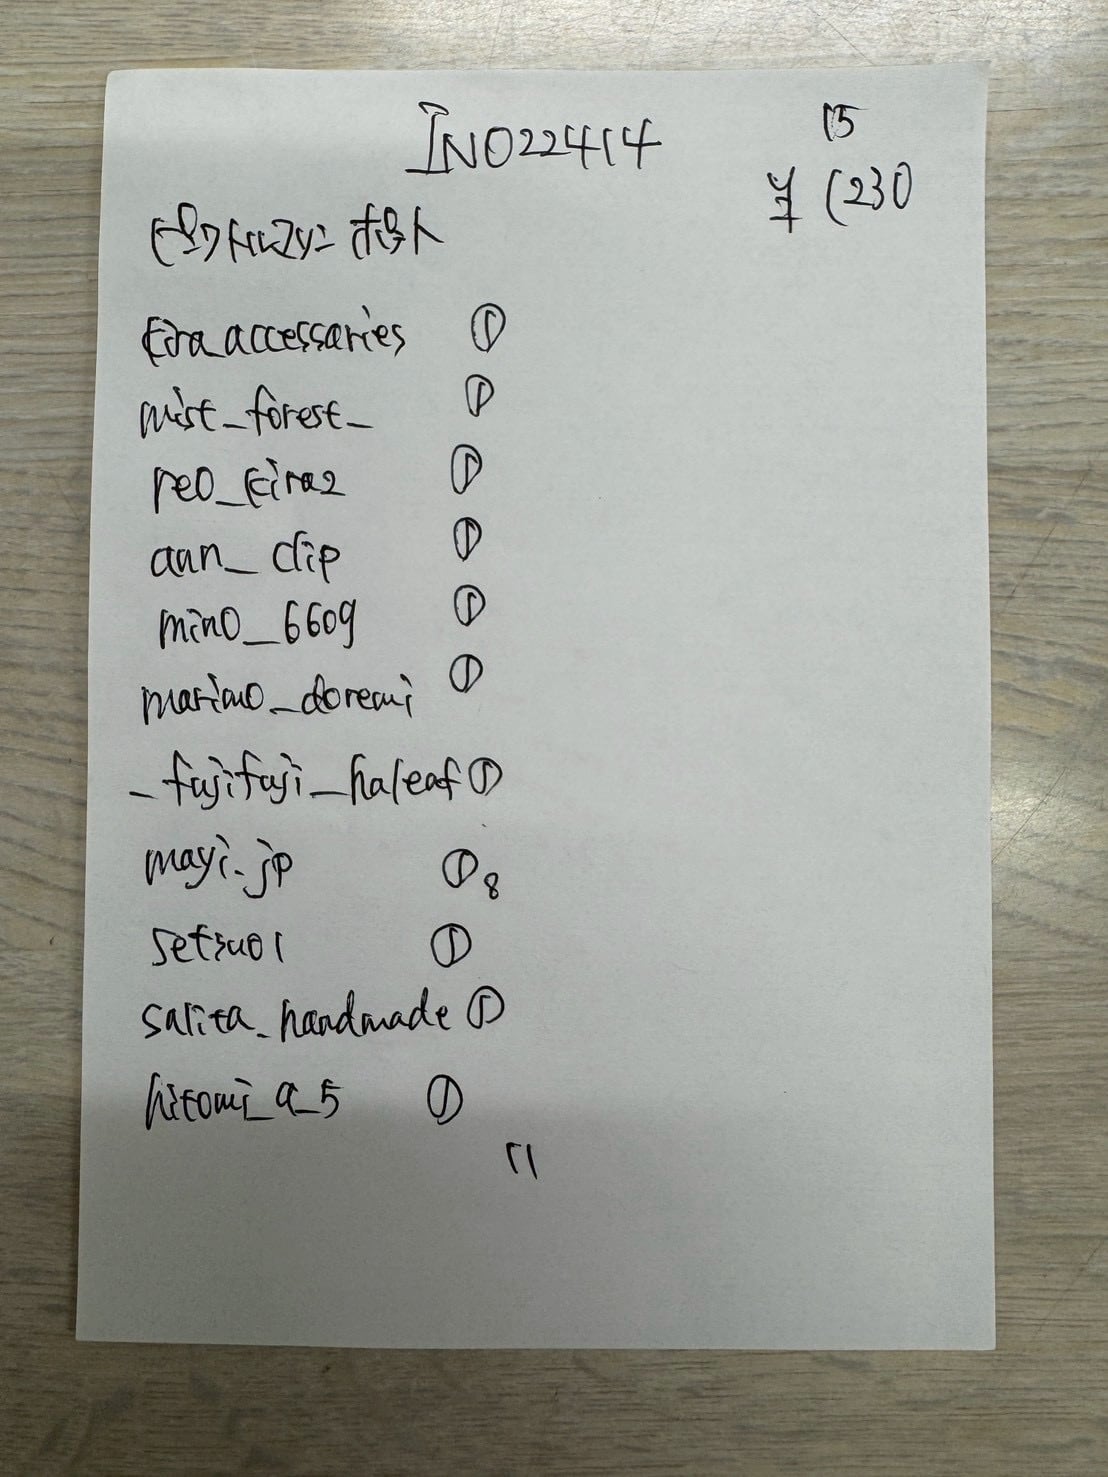 IN022414
15
¥ 1230
Eira_accessaries ①
mist_forest_ ①
reo_kira2 ①
aun_clip ①
mino_6609 ①
marimo_doremi ①
_fujifuji_haleaf ①
mayi.jp ① 8
setsuo1 ①
salita_handmade ①
hitomi_a_5 ①
11